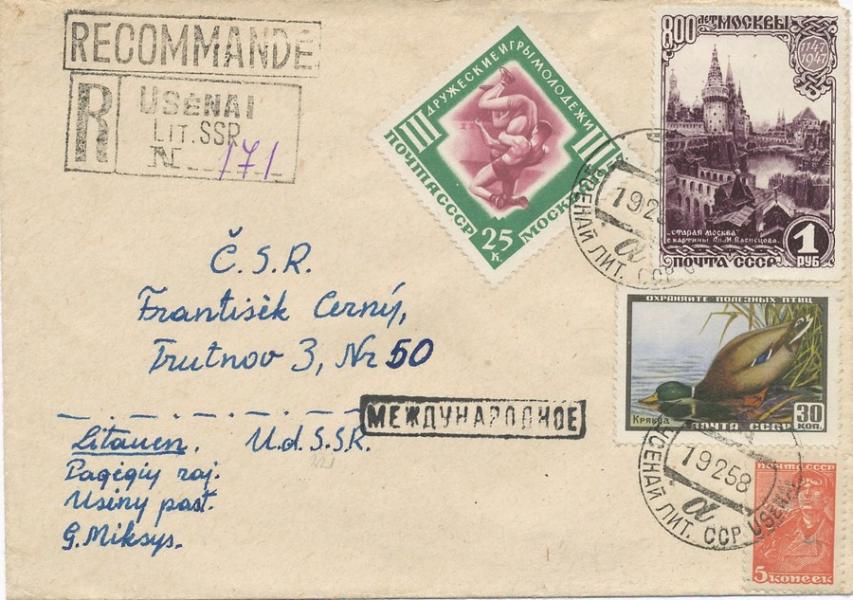 RECOMMANDÉ
R
USĖNAI
LIT. SSR
N 171
III ДРУЖЕСКИЕ ИГРЫ МОЛОДЕЖИ III
ПОЧТА СССР
МОСКВА
25 к.
800 ЛЕТ МОСКВЫ
1147
1947
„Старая Москва"
с картины
ПОЧТА СССР
1 РУБ
УСЕНАЙ ЛИТ. ССР
19258
а
Č.S.R.
František Černý,
Trutnov 3, Nr 50
МЕЖДУНАРОДНОЕ
Litauen, U.d.S.S.R.
Pagėgių raj.
Usėnų pašt.
G. Mikšys.
ОХРАНЯЙТЕ ПОЛЕЗНЫХ ПТИЦ
Кряква
ПОЧТА СССР
30 КОП.
УСЕНАЙ ЛИТ. ССР USENAI
19258
а
ПОЧТА СССР
5 копеек